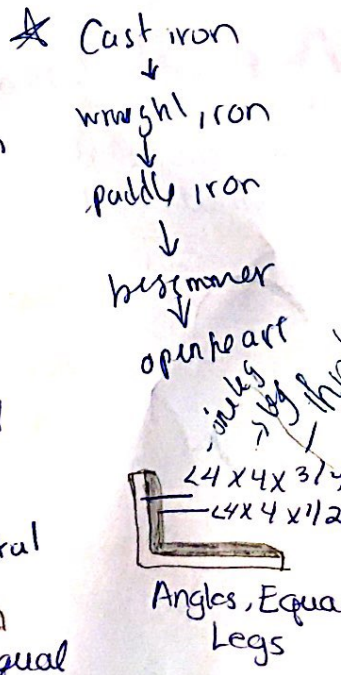 ☆ Cast iron
↓
wrought iron
↓
puddle iron
↓
bessmmer
↓
openheart
one leg
leg
L4 x 4 x 3/4
L4 x 4 x 1/2
Angles, Equa
Legs
ral
qual